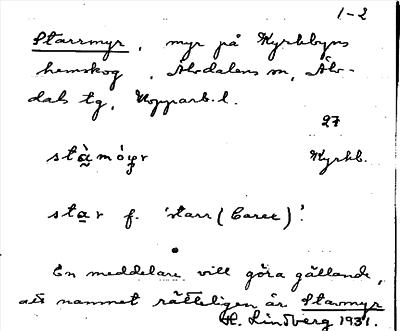 1-2
Starrmyr, myr på Kyrkbyns
hemskog, Älvdalens sn, Älv-
dals tg, Kopparb. l.
27
stà mó̀yr Kyrkb.
star f. 'starr (Carex)'.
En meddelare vill göra gällande,
att namnet rätteligen är Stavmyr
H. Lindberg 1931.